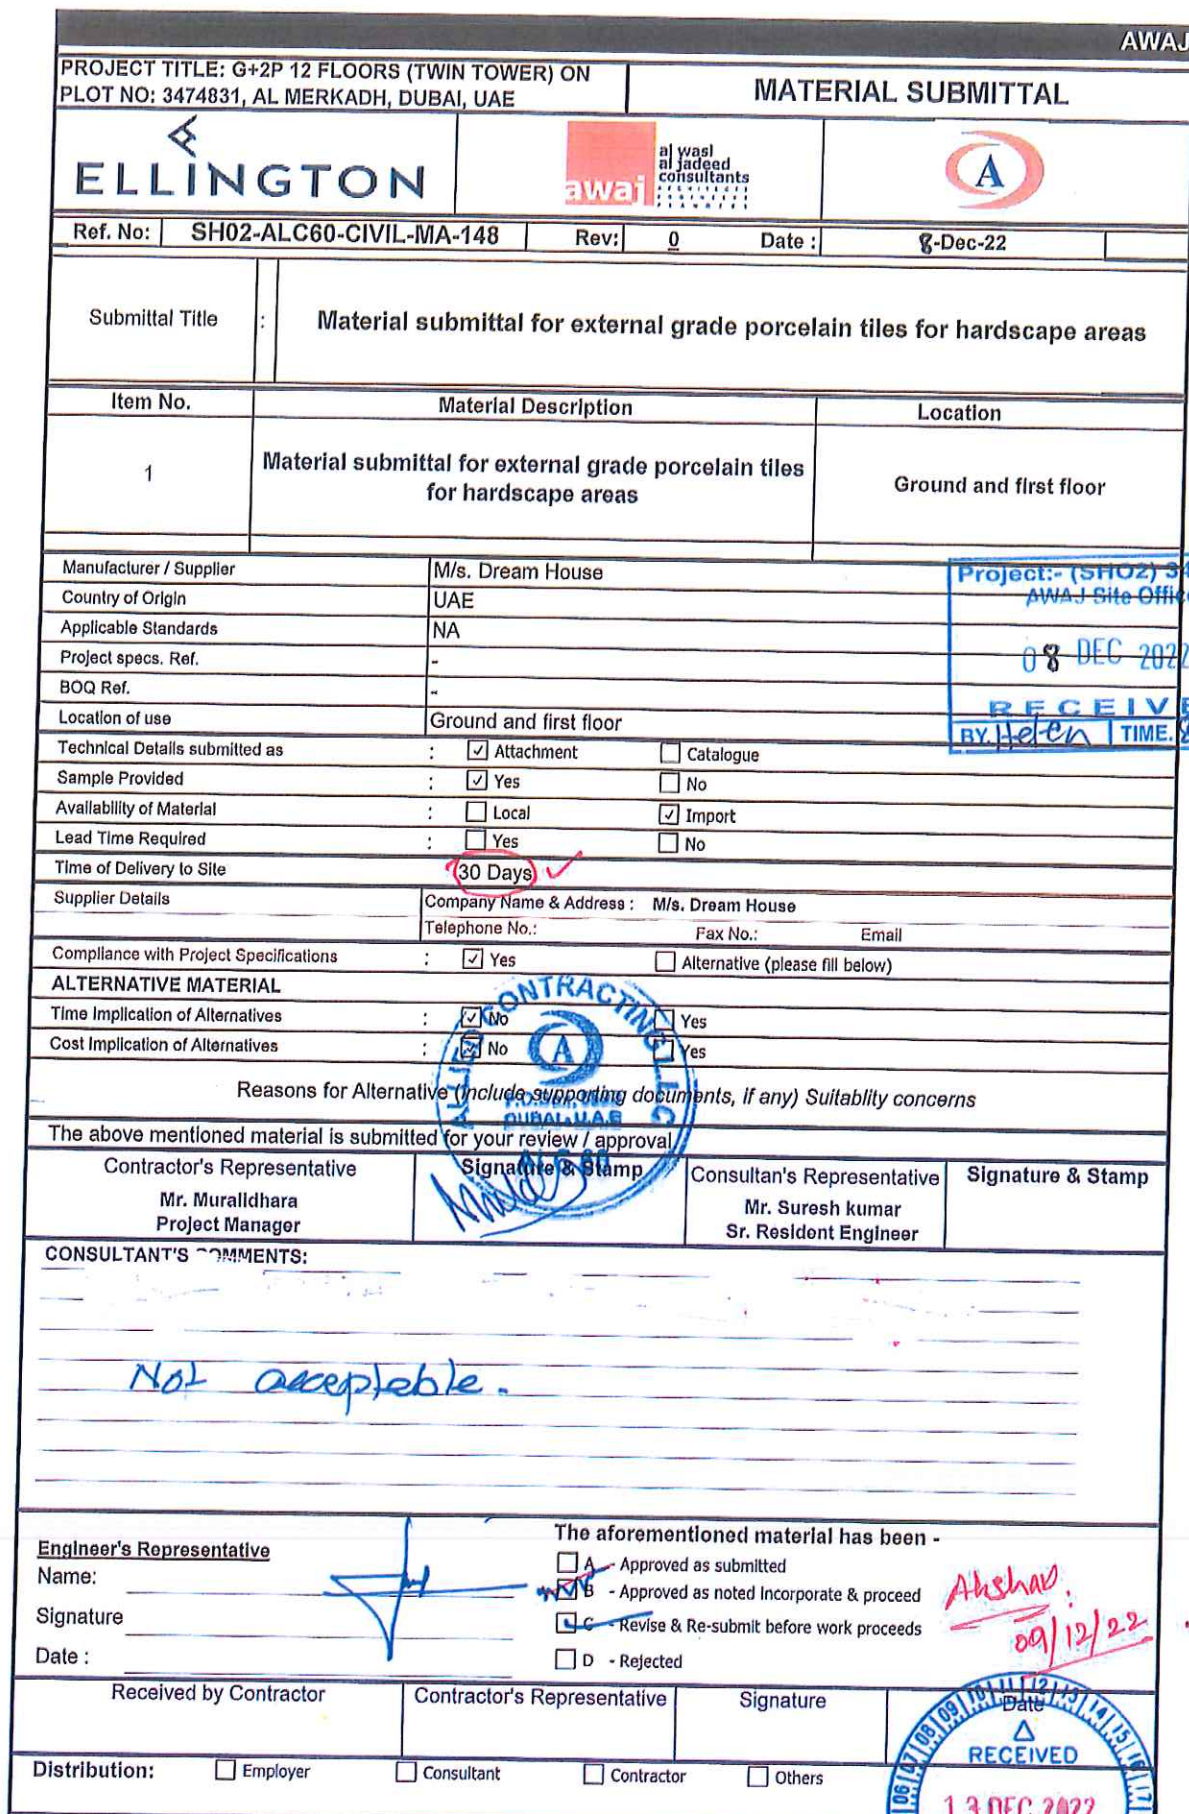 AWAJ
PROJECT TITLE: G+2P 12 FLOORS (TWIN TOWER) ON
PLOT NO: 3474831, AL MERKADH, DUBAI, UAE
MATERIAL SUBMITTAL
ELLINGTON
awaj
al wasl
al jadeed
consultants
A
Ref. No: SH02-ALC60-CIVIL-MA-148 Rev: 0 Date : 8-Dec-22
Submittal Title : Material submittal for external grade porcelain tiles for hardscape areas
Item No. Material Description Location
1 Material submittal for external grade porcelain tiles
for hardscape areas
Ground and first floor
Manufacturer / Supplier M/s. Dream House
Country of Origin UAE
Applicable Standards NA
Project specs. Ref. -
BOQ Ref. -
Location of use Ground and first floor
Project:- (SHO2) 34
AWAJ Site Offic
08 DEC 2022
RECEIVE
BY. Helen TIME.
Technical Details submitted as : ☑ Attachment ☐ Catalogue
Sample Provided : ☑ Yes ☐ No
Availability of Material : ☐ Local ☑ Import
Lead Time Required : ☐ Yes ☐ No
Time of Delivery to Site 30 Days ✓
Supplier Details Company Name & Address : M/s. Dream House
Telephone No.: Fax No.: Email
Compliance with Project Specifications : ☑ Yes ☐ Alternative (please fill below)
ALTERNATIVE MATERIAL
Time Implication of Alternatives : ☑ No ☐ Yes
Cost Implication of Alternatives : ☑ No ☐ Yes
Reasons for Alternative (Include supporting documents, if any) Suitablity concerns
ALLIED CONTRACTING L.L.C
A
DUBAI-U.A.E
The above mentioned material is submitted for your review / approval
Contractor's Representative Signature & Stamp Consultan's Representative Signature & Stamp
Mr. Muralidhara
Project Manager
Mr. Suresh kumar
Sr. Resident Engineer
CONSULTANT'S COMMENTS:
Not acceptable.
Engineer's Representative
Name:
Signature
Date :
The aforementioned material has been -
☐ A - Approved as submitted
B - Approved as noted Incorporate & proceed
☑ C - Revise & Re-submit before work proceeds
☐ D - Rejected
Akshay
09/12/22
Received by Contractor Contractor's Representative Signature Date
Distribution: ☐ Employer ☐ Consultant ☐ Contractor ☐ Others
06 07 08 09 10 11 12 13 14 15 16 17
RECEIVED
13 DEC 2022